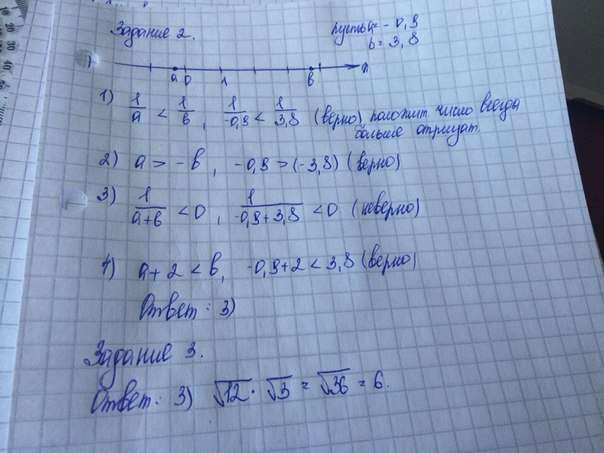 Задание 2.
пусть a = - 0,9
b = 3,8
a 0 1 b
1) 1/a < 1/b, 1/-0,9 < 1/3,8 (верно) положит число всегда
больше отрицат
2) a > - b, -0,9 > (-3,8) (верно)
3) 1/a+b < 0, 1/-0,9+3,8 < 0 (неверно)
4) a + 2 < b, -0,9+2 < 3,8 (верно)
Ответ: 3)
Задание 3.
Ответ: 3) √12 · √3 = √36 = 6.